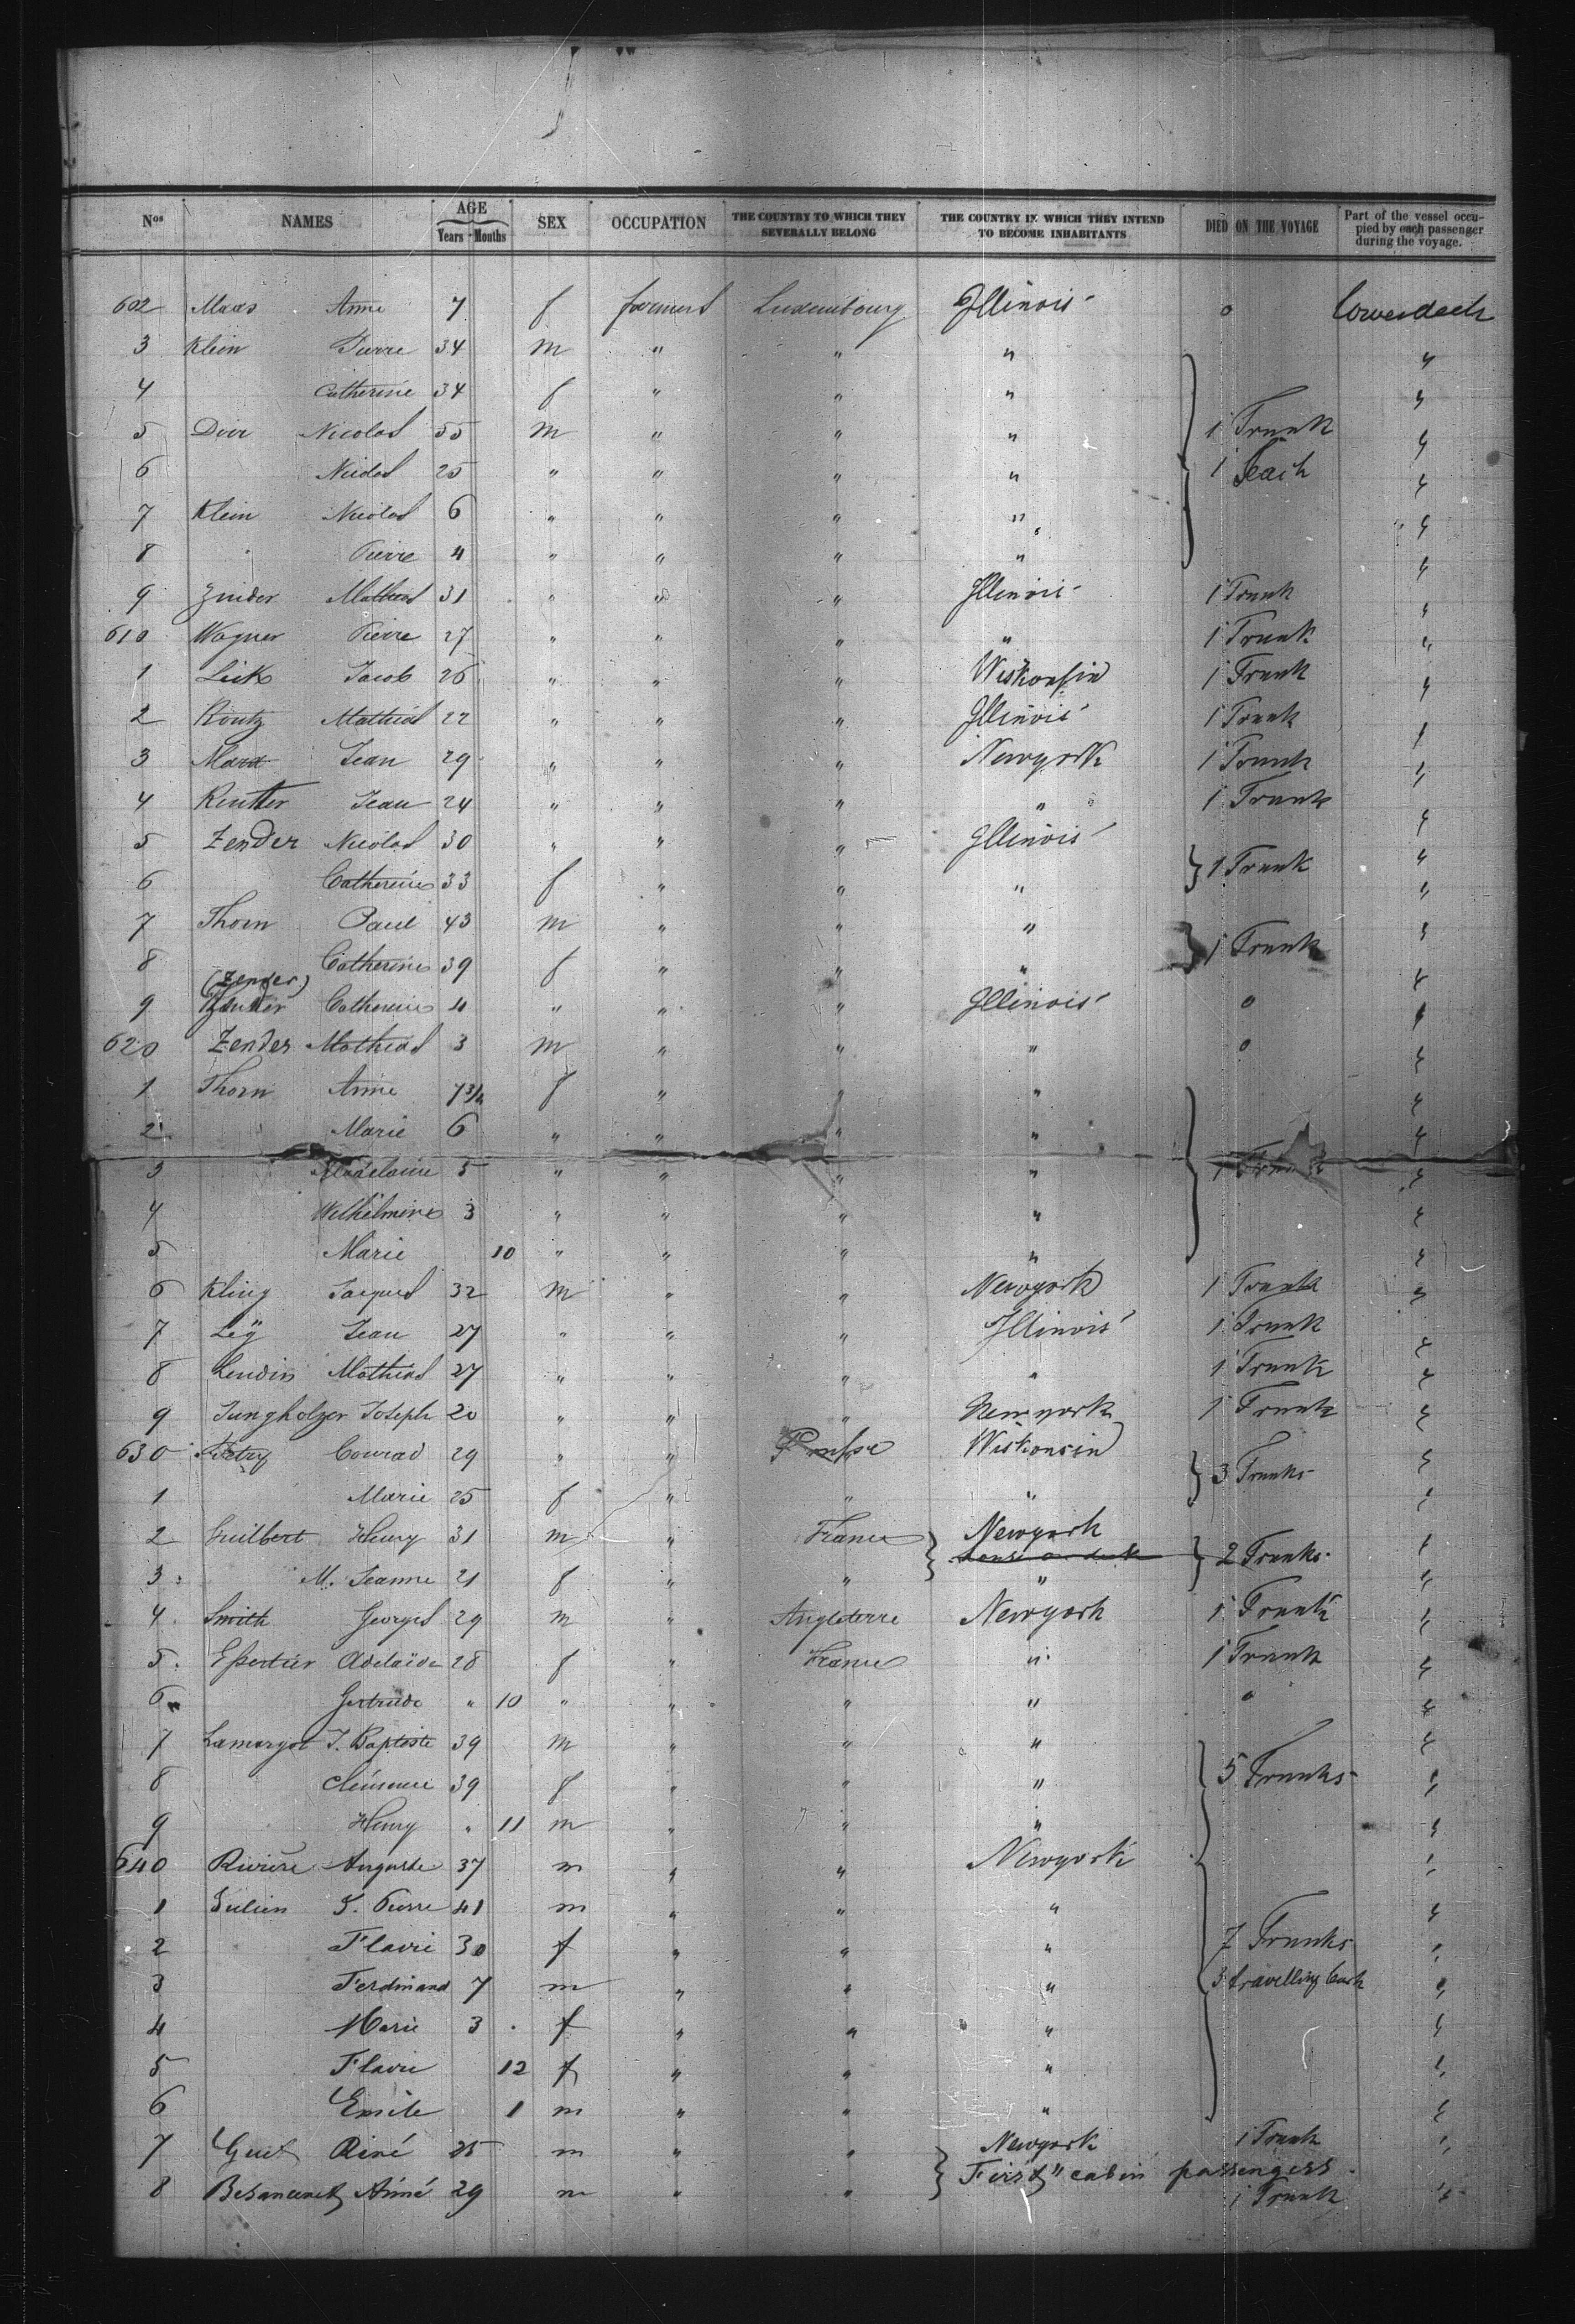 Nos NAMES AGE Years Months SEX OCCUPATION THE COUNTRY TO WHICH THEY SEVERALLY BELONG THE COUNTRY IN WHICH THEY INTEND TO BECOME INHABITANTS DIED ON THE VOYAGE Part of the vessel occupied by each passenger during the voyage.
602 Maas Anne 7 f Luxembourg Illinois o lowerdeck
3 Klein Pierre 34 m " " " "
4 Catherine 34 f " " " "
5 Nicolas 55 m " " " 1 Trunk "
6 Nicolas 25 " " " " 1 "
7 Klein Nicolas 6 " " " " "
8 " Pierre 4 " " " " "
9 Zinder Mathias 31 " " " Illinois 1 Trunk "
610 Wagner Pierre 27 " " " " 1 Trunk "
1 Jacob 26 " " " Wiskonsin 1 Trunk "
2 Mathias 22 " " " Illinois 1 Trunk "
3 Marx Jean 29 " " " Newyork 1 Trunk "
4 Reutter Jean 24 " " " " 1 Trunk "
5 Zender Nicolas 30 " " " Illinois "
6 Catherine 33 f " " " 1 Trunk "
7 Thorn Paul 43 m " " " "
8 Catherine 39 f " " " 1 Trunk "
(Zender)
9 Catherine 4 " " " Illinois o "
620 Zender Mathias 3 m " " " o "
1 Thorn Anne 7 3/4 f " " " "
2 Marie 6 " " " " "
3 Madelaine 5 " " " " 1 Trunk "
4 Wilhelmine 3 " " " " "
5 Marie 10 " " " " "
6 Kling Jacques 32 m " " Newyork 1 Trunk "
7 Leÿ Jean 27 " " " Illinois 1 Trunk
8 Mathias 27 " " " " 1 Trunk "
9 Jungholzer Joseph 20 " " " Newyork 1 Trunk "
630 Conrad 29 " " Prusse Wiskonsin 3 Trunks "
1 Marie 25 f " " " "
2 Guilbert Henry 31 m " France Newyork 2 Trunks "
3 M. Jeanne 21 f " " " "
4 Smith Georges 29 m " Angleterre Newyork 1 Trunk "
5 Essertier Adelaïde 28 f " France " 1 Trunk "
6 Gertrude " 10 " " " " o "
7 Lamargot J. Baptiste 39 m " " " "
8 Clémence 39 f " " " 5 Trunks "
9 Henry " 11 m " " " "
640 Rivière Auguste 37 m " " Newyork "
1 Julien J. Pierre 41 m " " " "
2 Flavie 30 f " " " 7 Trunks "
3 Ferdinand 7 m " " " 3 travelling "
4 Marie 3 f " " " "
5 Flavie 12 f " " " "
6 Emile 1 m " " " "
7 René 25 m " " Newyork 1 Trunk "
First " cabin passengers
8 Aimé 29 m " " 1 Trunk "